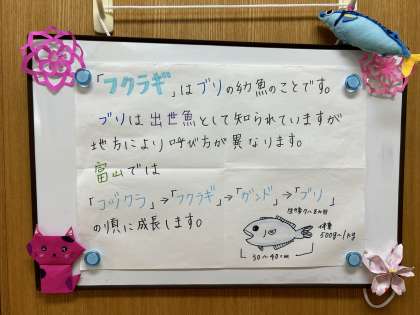 「フクラギ」はブリの幼魚のことです。
ブリは出世魚として知られていますが
地方により呼び方が異なります。
富山では
「コヅクラ」→「フクラギ」→「ガンド」→「ブリ」
の順に成長します。
体重
500g～1kg
30～40cm